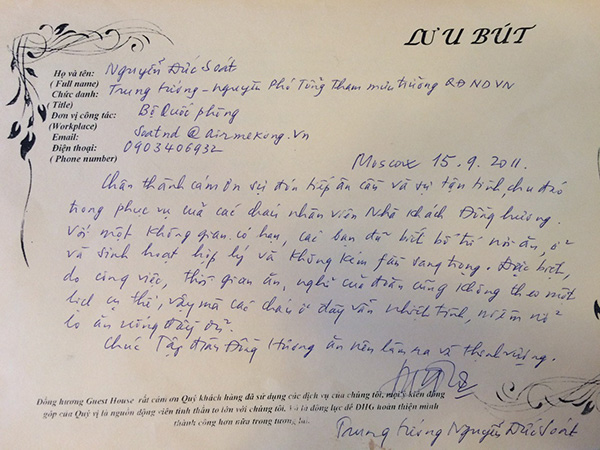 LƯU BÚT
Họ và tên: Nguyễn Đức Soát
( Full name)
Chức danh: Trung tướng - nguyên Phó Tổng Tham mưu trưởng QĐNDVN
(Title)
Đơn vị công tác: Bộ Quốc phòng
(Workplace)
Email: Soatnd @ airmekong.vn
Điện thoại: 0903406932
( Phone number)
Moscow 15.9.2011.
Chân thành cám ơn sự đón tiếp ân cần và sự tận tình, chu đáo
trong phục vụ của các cháu nhân viên Nhà khách Đồng hương.
Với một không gian có hạn, các bạn đã biết bố trí nơi ăn, ở
và sinh hoạt hợp lý và không kém phần sang trọng. Đặc biệt,
do công việc, thời gian ăn, nghỉ của đoàn cũng không theo một
lịch cụ thể, vậy mà các cháu ở đây vẫn nhiệt tình, niềm nở
lo ăn uống đầy đủ.
Chúc Tập đoàn Đồng Hương ăn nên làm ra và thịnh vượng.
Đồng hương Guest House rất cảm ơn Quý khách hàng đã sử dụng các dịch vụ của chúng tôi, mọi ý kiến đóng
góp của Quý vị là nguồn động viên tinh thần to lớn với chúng tôi. Và là động lực để ĐHG hoàn thiện mình
thành công hơn nữa trong tương lai.
Trung tướng Nguyễn Đức Soát